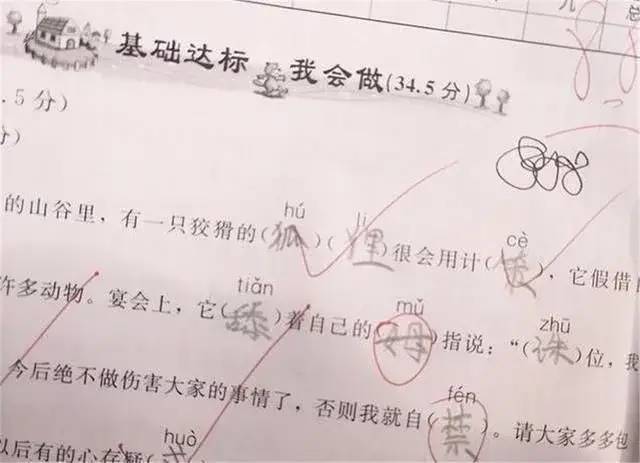 总
基础达标 我会做(34.5分)
.5分)
分)
hú li cè
的山谷里，有一只狡猾的(狐)(狸)很会用计(策)，它假借
tiǎn mǔ zhū
许多动物。宴会上，它(舔)着自己的(姆)指说：“(诛)位，我
fén
今后绝不做伤害大家的事情了，否则我就自(禁)。请大家多多包
huò
以后有的心存疑(